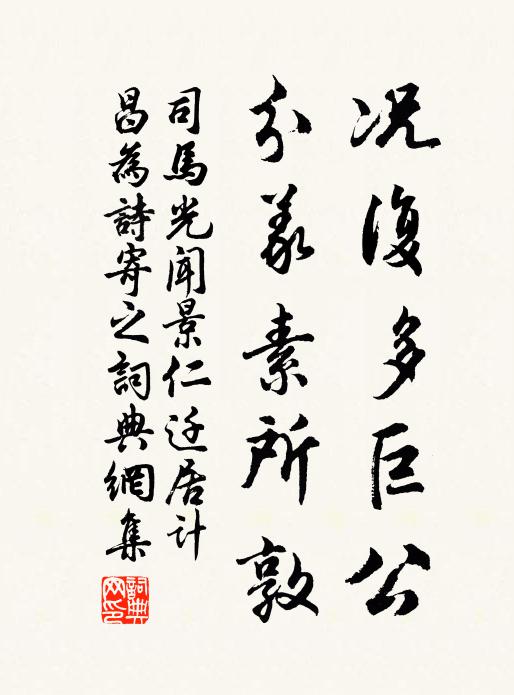 况復多巨公
分義素所敦
司馬光聞景仁迁居許
昌為詩寄之詞典網集
詞典網印